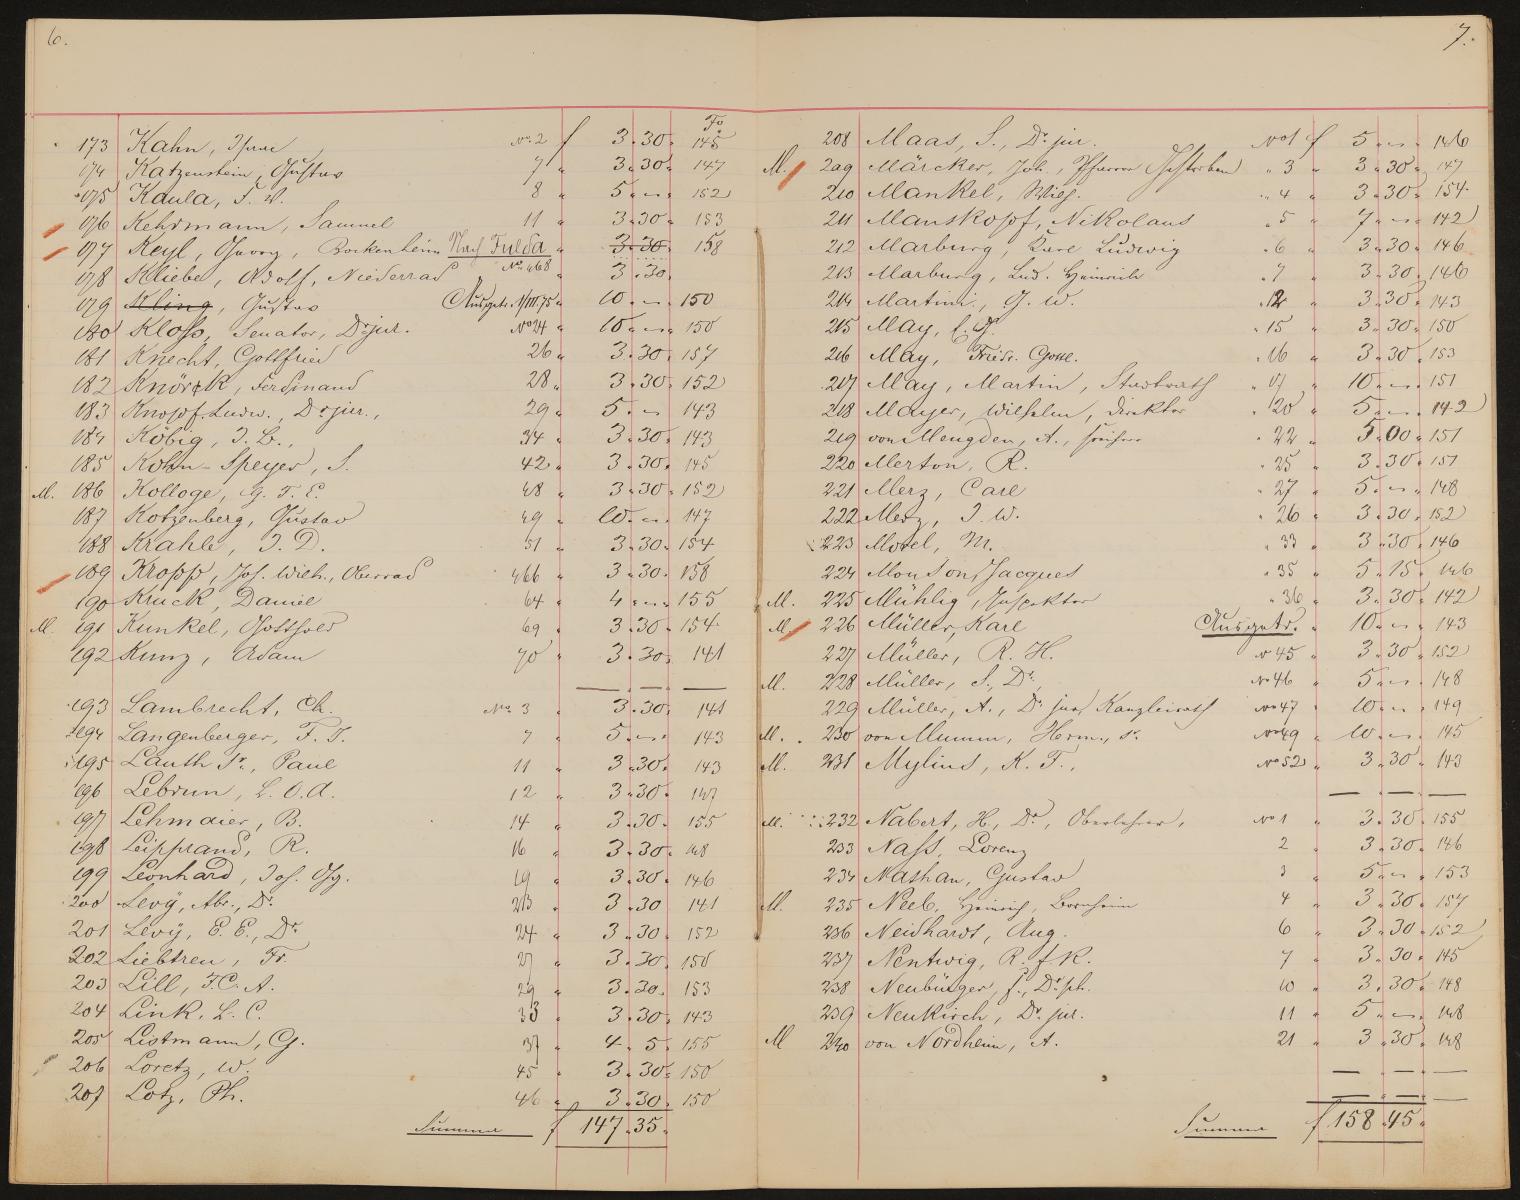 6.
Fo
173 Kahn, Isaac No. 2 f 3. 30. 145
174 Katzenstein, Gustav 7 " 3. 30. 147
175 Kaula, S. W. 8 " 5 " — " 152
176 Kehrmann, Samuel 11 " 3. 30 " 153
177 Keyl, Georg, Bockenheim Nach Fulda " 3. 30. 158
178 Kliebe, Adolf, Niederrad No. 468 " 3. 30.
179 Kling, Gustav Ausgetr. 1/III.75 " 10 " — " 150
180 Kloss, Senator, Dr. jur. No 24 " 10 " — " 150
181 Knecht, Gottfried 26 " 3. 30. 157
182 Knörck, Ferdinand 28 " 3. 30. 152
183 Knopf, Ludw., Dr. jur., 29 " 5 " — 143
184 Köbig, J. B., 34 " 3. 30. 143
185 Kohn-Speyer, S. 42 " 3. 30. 145
M. 186 Kolloge, G. F. E. 48 " 3. 30. 152
187 Kotzenberg, Gustav 49 " 10 " — " 147
188 Krahle, J. D. 51 " 3. 30. 154
189 Kropp, Jos. Wilh., Oberrad 466 " 3. 30. 158
190 Kruck, Daniel 64 " 4 " — " 155
M. 191 Kunkel, Gotthold 69 " 3. 30. 154
192 Kunz, Adam 70 " 3. 30. 141
193 Lambrecht, Ch. No. 3 3. 30. 141
194 Langenberger, F. T. 7 " 5 " — " 143
195 Lauth Sr., Paul 11 " 3. 30. 143
196 Lebrun, L. O. A. 12 " 3. 30. 147
197 Lehmaier, B. 14 " 3. 30. 155
198 Leipprand, R. 16 " 3. 30. 148
199 Leonhard, Joh. Gg. 19 " 3. 30. 146
200 Levÿ, Abr., Dr. 23 " 3. 30 141
201 Levÿ, E. E., Dr. 24 " 3. 30. 152
202 Liebtreu, Fr. 27 " 3. 30. 150
203 Lill, F. C. A. 29 " 3. 30. 153
204 Link, L. C. 33 " 3. 30. 143
205 Listmann, G. 37 " 4. 5. 155
206 Loretz, W. 45 " 3. 30. 150
207 Lotz, Ph. 46 " 3. 30. 150
Summa f 147. 35.
7.
208 Maas, S., Dr. jur. No 1 f 5 " — " 146
M. 209 Märcker, Joh., Pfarrer Gestorben " 3 " 3 " 30 " 147
210 Mankel, Wilh. " 4 " 3. 30. 154
211 Manskopf, Nikolaus " 5 " 7 " — " 142
212 Marburg, Carl Ludwig " 6 " 3. 30. 146
213 Marburg, Lud. Heinrich " 7 " 3. 30. 146
214 Martini, G. W. " 12 " 3. 30. 143
215 May, E. G. " 15 " 3. 30. 150
216 May, Fried. " 16 " 3. 30. 153
217 May, Martin, Stadtrath " 17 " 10 " — " 151
218 Mayer, Wilhelm, Direktor " 20 " 5 " — " 142
219 von Mengden, A., Freiherr " 22 " 5. 00 " 151
220 Merton, R. " 25 " 3. 30. 151
221 Merz, Carl " 27 " 5 " — " 148
222 Merz, J. W. " 26 " 3. 30. 152
223 Morel, M. " 33 " 3. 30. 146
224 Monson, Jacques " 35 " 5. 15. 146
M. 225 Mühlig, Inspektor " 36 " 3. 30. 142
M. 226 Müller, Karl Ausgetr. " 10 " — " 143
227 Müller, R. H. No 45 " 3. 30. 152
M. 228 Müller, S., Dr., No 46 " 5 " — " 148
229 Müller, A., Dr. jur., Kanzleirath No 47 " 10 " — " 149
M. 230 von Mumm, Herm., sr. No 49 " 10 " — " 145
M. 231 Mylius, K. F., No 52 " 3 " 30 " 143
M. 232 Nabert, H., Dr., Oberlehrer, No 1 " 3. 30. 155
233 Nass, Lorenz 2 " 3. 30. 146
234 Nathan, Gustav 3 " 5 " — " 153
M. 235 Neeb, Heinrich, Bornheim 4 " 3. 30. 157
236 Neidhardt, Aug. 6 " 3. 30. 152
237 Nentwig, R. f. K. 7 " 3. 30. 145
238 Neubürger, f., Dr. ph. 10 " 3. 30. 148
239 Neukirch, Dr. jur. 11 " 5 " — " 148
M 240 von Nordheim, A. 21 " 3. 30. 148
Summa f 158. 45.